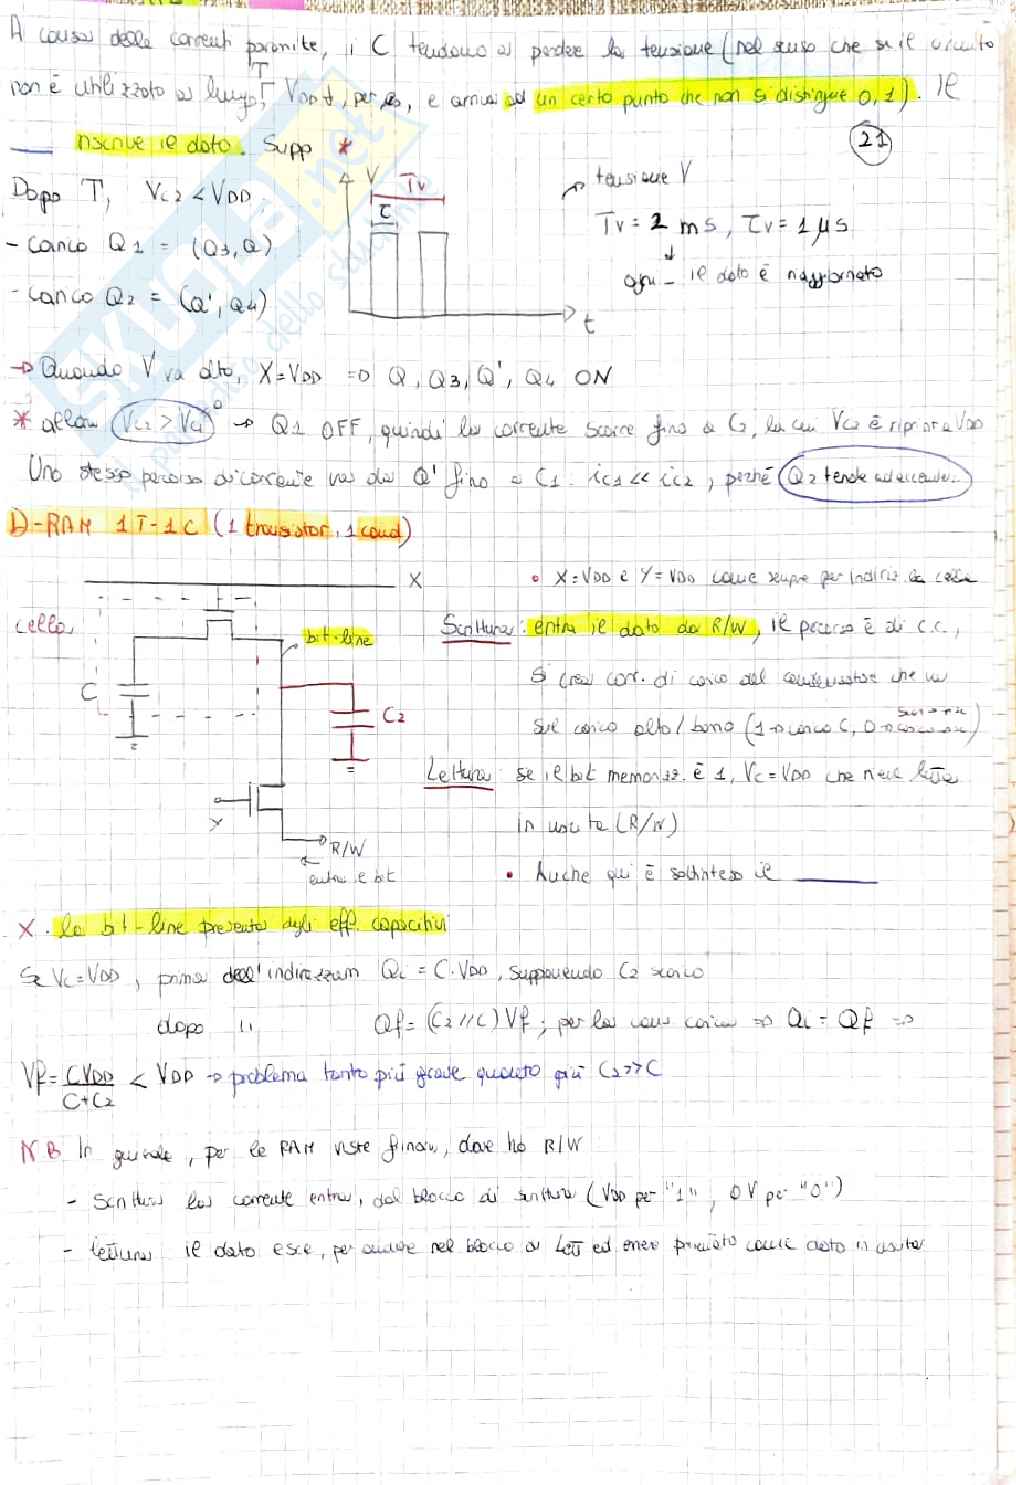 A causa delle correnti parassite, i C tendono a perdere la tensione (nel senso che se il circuito
non è utilizzato a lungo, T VDD ↓, per es, e arriva ad un certo punto che non si distingue 0,1). Il
riscrive il dato. Supp *
21
Dopo T, VC2 < VDD
- carico Q1 = (Q3, Q)
- carico Q2 = (Q', Q4)
V
Tv
τ
t
tensione V
Tv = 2 ms, τv = 1 μs
ogni _ il dato è riaggiornato
→ Quando V va alto, X=VDD => Q, Q3, Q', Q4 ON
* allora VC2 > VC1 → Q1 OFF, quindi la corrente scorre fino a C2, la cui VC2 è ripristinata VDD
Uno stesso percorso di corrente va da Q' fino a C1. iC1 << iC2, perché Q2 tende ad accendersi
D-RAM 1T-1C (1 transistor, 1 cond)
X
cella
bit-line
C
C2
Y
R/W
entra il bit
• X=VDD e Y=VDD come sempre per indiriz. la cella
Scrittura: entra il dato da R/W, il percorso è di c.c.,
si crea corr. di carica del condensatore che va
sul carico alto/basso (1→carico C, 0→
Lettura: se il bit memorizz. è 1, VC=VDD che viene letta
in uscita (R/W)
• Anche qui è sottinteso il
X • la bit-line presenta degli eff. capacitivi
Se VC=VDD, prima dell'indirizzam Qi = C·VDD, supponendo C2 scarico
dopo " Qf = (C2//C) Vf; per la cons carica => Qi = Qf =>
Vf = CVDD / C+C2 < VDD → problema tanto più grave quanto più C2>>C
NB In generale, per le RAM viste finora, dove ho R/W
- Scrittura la corrente entra, dal blocco di scrittura (VDD per "1", 0V per "0")
- lettura il dato esce, per andare nel blocco di Lett ed essere prelevato come dato in uscita
SKUOLA.net